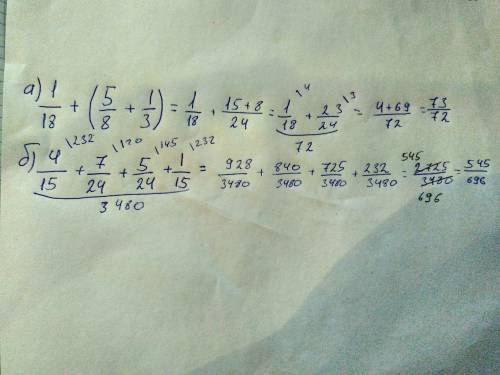 а) 1/18 + (5/8 + 1/3) = 1/18 + 15+8/24 = 1/18 \4 + 23/24 \3 = 4+69/72 = 73/72
72
б) 4/15 \232 + 7/24 \120 + 5/24 \145 + 1/15 \232 = 928/3480 + 840/3480 + 725/3480 + 232/3480 = 2725/3480 = 545/696
3480
545
696